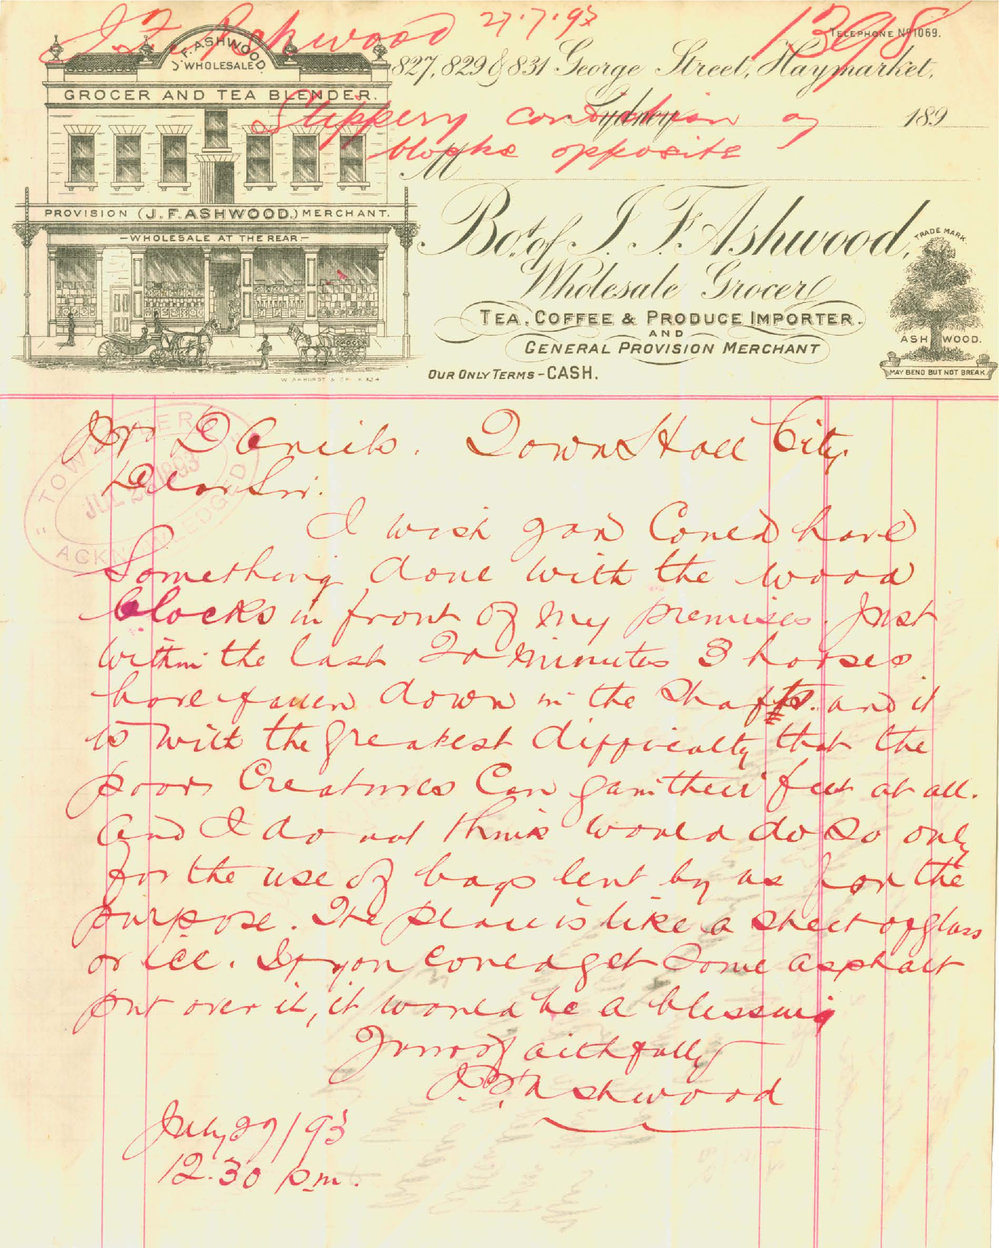 J F Ashwood 27.7.93 1398
TELEPHONE No 1069.
J. F. ASHWOOD.
WHOLESALE
GROCER AND TEA BLENDER.
827, 829 & 831 George Street, Haymarket,
Sydney 189
Slippery condition of
blocks opposite
M
PROVISION (J. F. ASHWOOD.) MERCHANT.
WHOLESALE AT THE REAR
Bot. of J. F. Ashwood,
Wholesale Grocer
TEA, COFFEE & PRODUCE IMPORTER.
AND
GENERAL PROVISION MERCHANT
OUR ONLY TERMS - CASH.
TRADE MARK
ASHWOOD.
MAY BEND BUT NOT BREAK
TOWN CLERK
JUL 1893
ACKNOWLEDGED
Daniels. Town Hall City
Dear Sir.
I wish you Could have
Something done with the wood
blocks in front of my premises. Just
within the last 20 minutes 3 horses
have fallen down in the shafts. and it
is with the greatest difficulty that the
poor Creatures Can gain their feet at all.
and I do not think would do so only
for the use of bags lent by us for the
purpose. The place is like a sheet of glass
or ice. If you could get Some asphalt
put over it, it would be a blessing
Yours faithfully
J. F. Ashwood
July 27/93
12.30 pm.